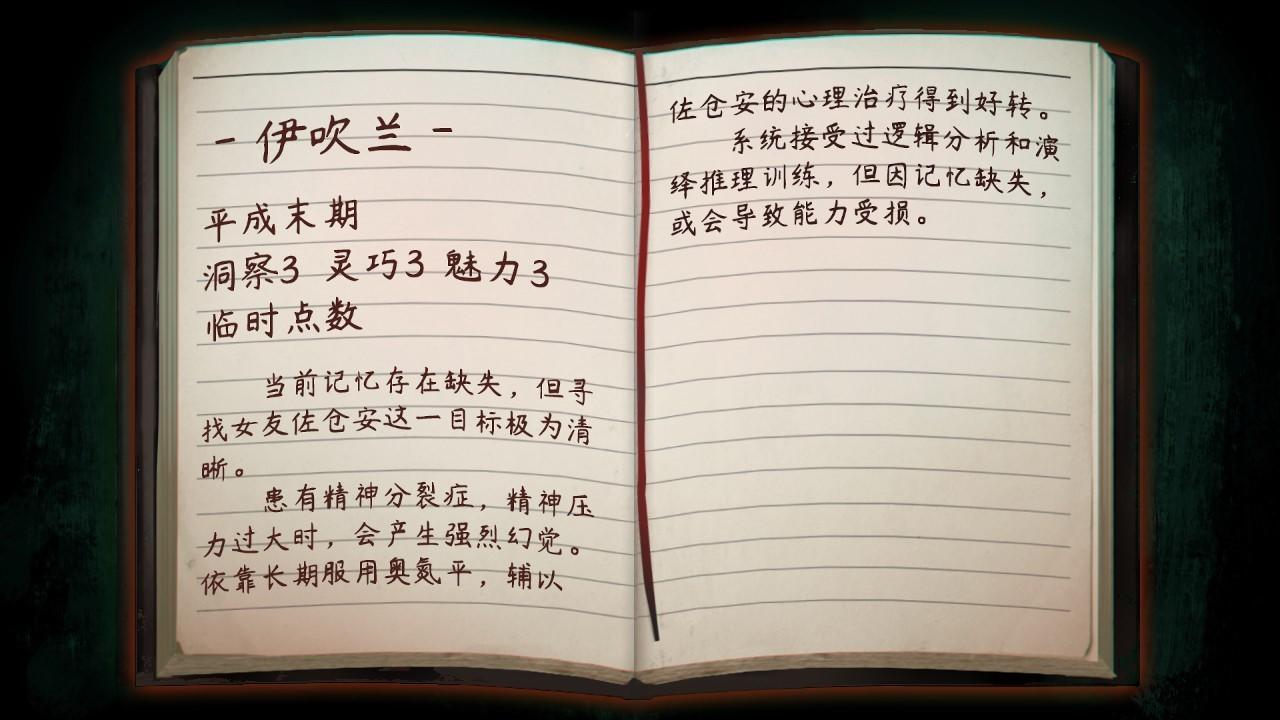 - 伊吹兰 -
平成末期
洞察3 灵巧3 魅力3
临时点数
当前记忆存在缺失，但寻
找女友佐仓安这一目标极为清
晰。
患有精神分裂症，精神压
力过大时，会产生强烈幻觉。
依靠长期服用奥氮平，辅以
佐仓安的心理治疗得到好转。
系统接受过逻辑分析和演
绎推理训练，但因记忆缺失，
或会导致能力受损。